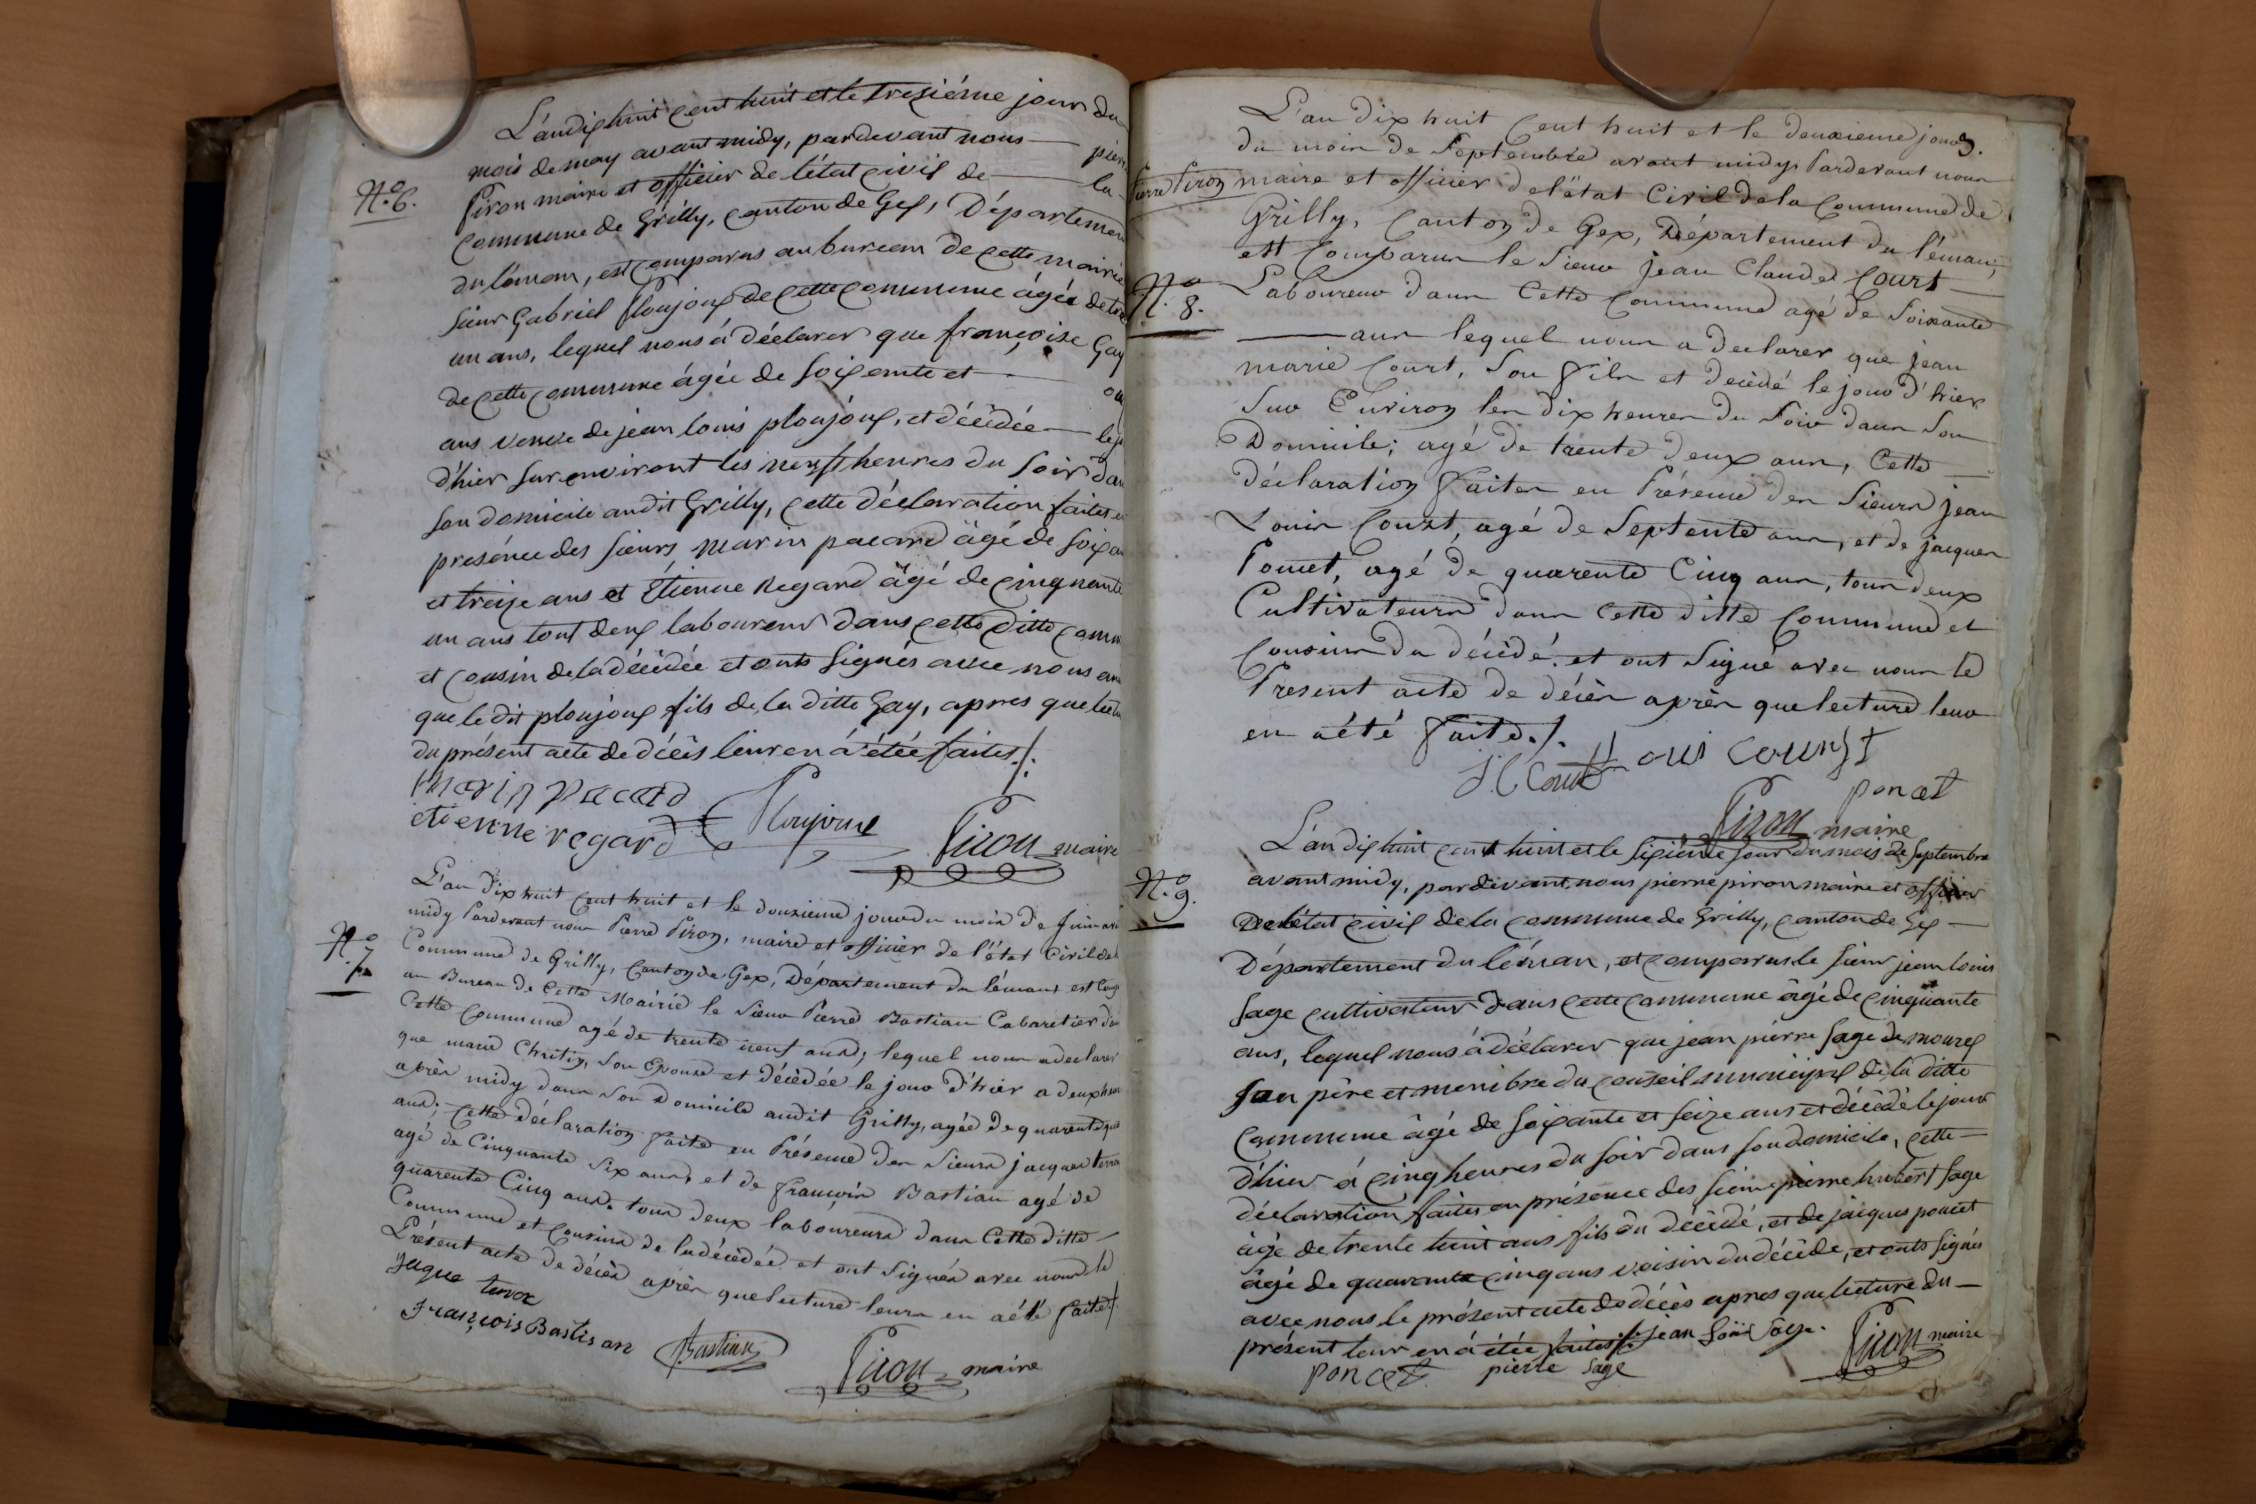 L'an dix huit cent huit et le trezième jour du
mois de may avant midy, pardevant nous
N.° 6.
Piron maire et officier de létat civil de la
commune de Grilly, canton de Gex, Département
du léman, est comparus au bureau de cette mairie
sieur Gabriel Ploujoux de cette commune âgée de
un ans, lequel nous á déclarer que françoise Gay
de cette commune âgée de soixente et
ans veuve de jean louis ploujoux, et décédée
d'hier sur environt les neuf heures du soir
son domicile audit Grilly, cette déclaration faites
présence des sieurs marin pacard âgé de
et treize ans et Étienne Regard âgé de cinquante
un ans tout deux laboureur dans cette ditte
et cousin de la décédée et onts signés avec nous
que le dit ploujoux fils de la ditte Gay, apres que
du présent acte de décès leur en á étée faites ./.
marin pacard
etienne regard Ploujoux
Piron maire
L'an dix huit cent huit et le douzieme jour du mois de Juin
midy Pardevant nous Pierre Piron, maire et officier de l'état Civil
N.° 7
Commune de Grilly, Canton de Gex, Département du léman est
au Bureau de cette Mairie le Sieur Pierre Bastian Cabaretier
Cette Commune agé de trente neuf ans, lequel nous a declarer
que marie Chritin, son Epouse et décédée le jour d'hier a deux
après midy dans son Domicile audit Grilly, agée de quarente
ans; Cette déclaration faite en Présence des Sieurs jacques
agé de Cinquante Six ans et de françois Bastian agé de
quarente Cinq ans. tous deux laboureurs dans Cette ditte
Commune et Cousins de la décédée et ont Signés avec nous le
Présent acte de décès après que lecture leurs en aété faite
Jaque
françois Bastian Bastian
Piron maire
L'an Dix huit Cent huit et le deuxieme jour
du mois de Septembre avant midy Pardevant nous
Pierre Piron maire et officier de l'état Civil de la Commune de
Grilly, Canton de Gex, Département du léman,
est Comparus le Sieur jean Claude Court
N.° 8.
Laboureur dans Cette Commune agé de Soixante
ans lequel nous a declarer que jean
marie Court, Son fils et décédé le jour d'hier
Sur Environ les dix heures du Soir dans Son
Domicile; agé de trente deux ans, Cette
déclaration Faites en Présence des Sieurs jean
Louis Courst, agé de Septente ans, et de jacques
Poncet, agé de quarente Cinq ans, tous deux
Cultivateurs dans Cette ditte Commune et
Cousins du décédé. et ont Signé avec nous le
Présent acte de décès après que lecture leur
en aété Faite./.
J. C Court Loui Courst
poncet
Piron maire
L'an dix huit cent huit et le sixième jour du mois de septembre
avant midy, pardevant nous pierre piron maire et officier
N.° 9.
de l'état civil de la commune de Grilly, canton de Gex
Département du léman, et comparus le sieur jean louis
Sage cultivateur dans cette commune âgé de cinquante
ans, lequel nous á déclarer que jean pierre Sage
son père et membre du conseil municipal de la ditte
commune âgé de soixante et seize ans et décédé le jour
d'hier á cinq heures du soir dans son domicile, cette
déclaration faites en présence des sieurs pierre hubert Sage
âgé de trente huit ans fils du décédé, et de jacques poncet
âgé de quarante cinq ans voisin du décédé, et onts signés
avec nous le présent acte de décès apres que lecture du
présent leur en á étée faites ./. jean Loui Sage.
Piron maire
poncet. pierre Sage